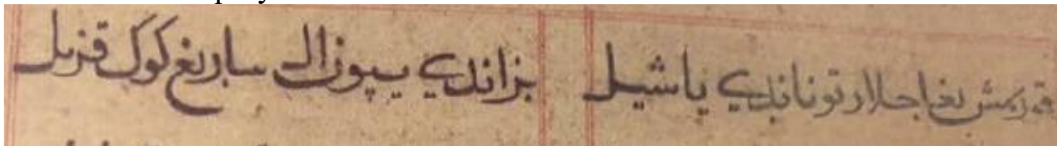 قوريمش يغاجلار توناندي ياشيل بزاندي يپون ال ساريغ كوك قزيل